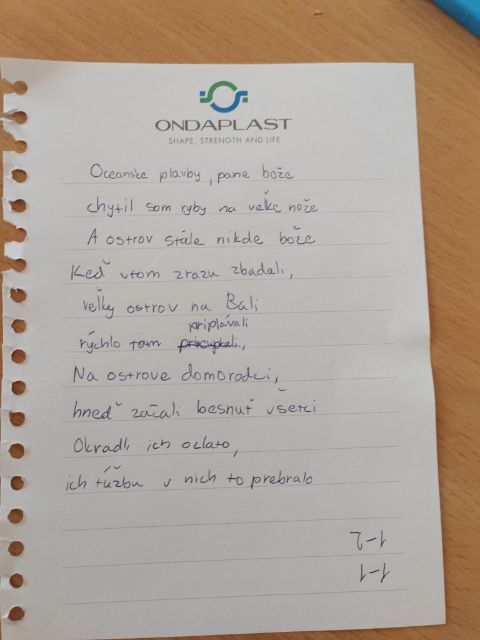 ONDAPLAST
SHAPE, STRENGTH AND LIFE
Oceanske plavby, pane bože
chytil som ryby na veľke nože
A ostrov stále nikde bože
Keď vtom zrazu zbadali,
veľky ostrov na Bali
priplávali
rýchlo tam pricupkali,
Na ostrove domorodci,
hneď začali besnuť všetci
Okradli ich ozlato,
ich túžbu v nich to prebralo
1-2
1-1